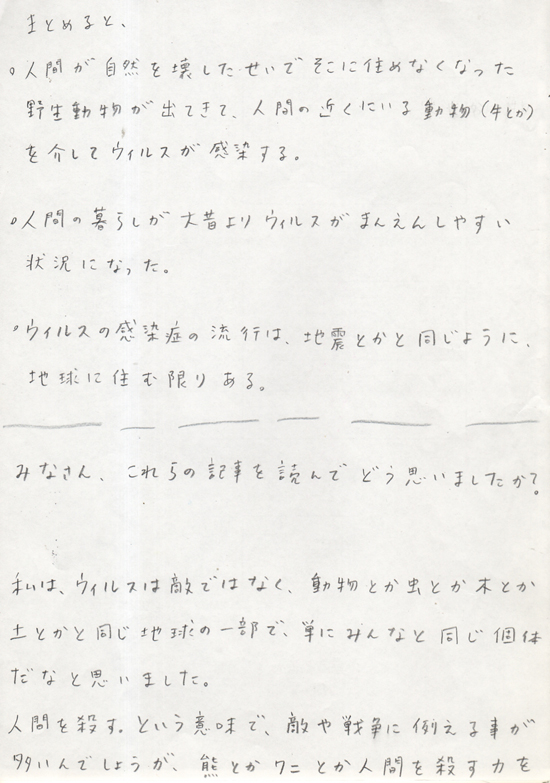 まとめると、
○人間が自然を壊したせいでそこに住めなくなった
野生動物が出てきて、人間の近くにいる動物(牛とか)
を介してウィルスが感染する。
○人間の暮らしが大昔よりウィルスがまんえんしやすい
状況になった。
○ウィルスの感染症の流行は、地震とかと同じように、
地球に住む限りある。
みなさん、これらの記事を読んでどう思いましたか?
私は、ウィルスは敵ではなく、動物とか虫とか木とか
土とかと同じ地球の一部で、単にみんなと同じ個体
だなと思いました。
人間を殺す。という意味で、敵や戦争に例える事が
多いんでしょうが、熊とかワニとか人間を殺す力を